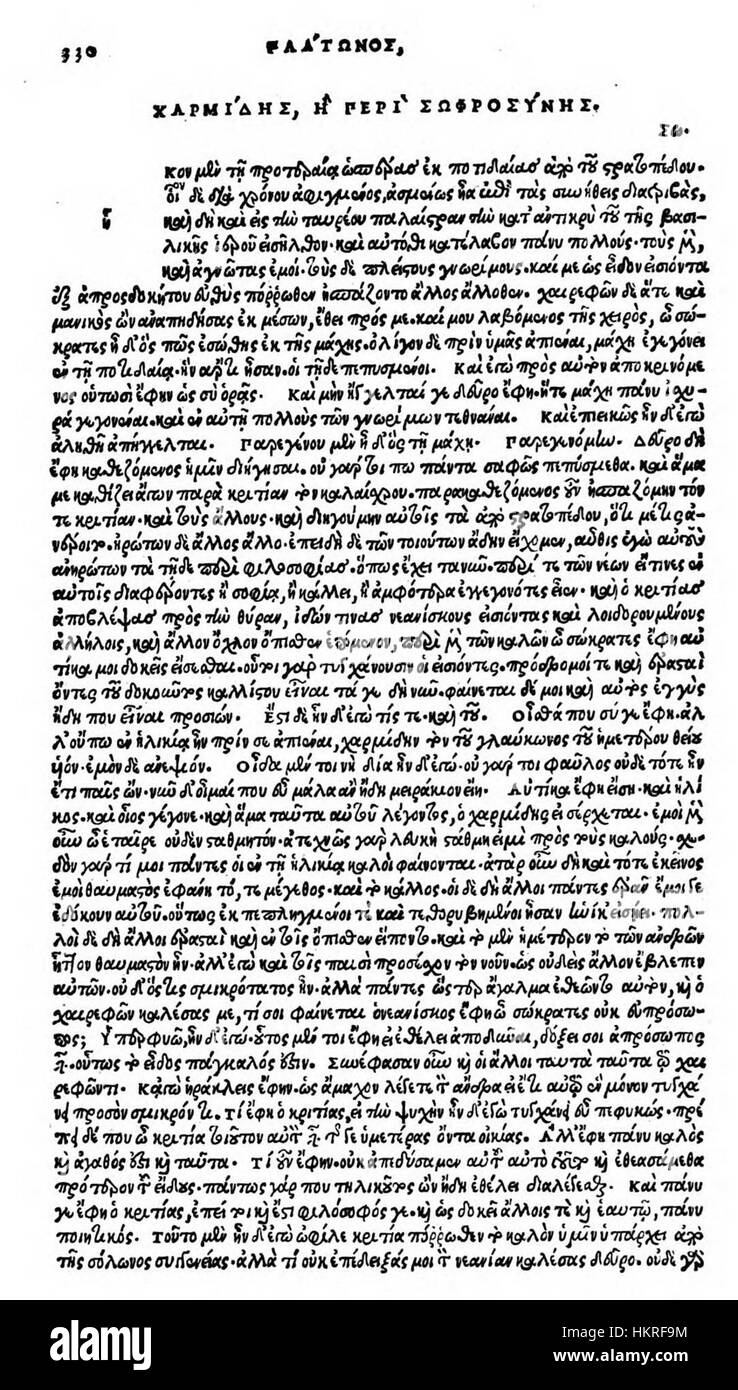 330
ΠΛΑΤΩΝΟΣ,
ΧΑΡΜΙΔΗΣ, Ἢ ΠΕΡΙ ΣΩΦΡΟΣΥΝΗΣ.
Σω.
κον μὲν τῇ προτεραίᾳ ἑσπέρας ἐκ ποτιδαίας ἀπὸ τοῦ στρατοπέδου.
οἷον δὲ διὰ χρόνου ἀφιγμένος, ἀσμένως ᾖα ἐπὶ τὰς συνήθεις διατριβὰς,
καὶ δὴ καὶ εἰς τὴν ταυρέου παλαίστραν τὴν κατ' αντικρὺ τοῦ τῆς βασι-
λικῆς ἱεροῦ εἰσῆλθον. καὶ αὐτόθι κατέλαβον πάνυ πολλούς. τοὺς μὲν,
καὶ ἀγνῶτας ἐμοί. τοὺς δὲ πλείστους γνωρίμους. καί με ὡς εἶδον εἰσιόντα
ἐξ ἀπροσδοκήτου εὐθὺς πόῤῥωθεν ἠσπάζοντο ἄλλος ἄλλοθεν. χαιρεφῶν δὲ ἅτε καὶ
μανικὸς ὢν ἀναπηδήσας ἐκ μέσων, ἔθει πρός με. καί μου λαβόμενος τῆς χειρὸς, ὦ σώ-
κρατες ἦ δ' ὃς πῶς ἐσώθης ἐκ τῆς μάχης. ὀλίγον δὲ πρὶν ὑμᾶς ἀπιέναι, μάχη ἐγεγόνει
ἐν τῇ ποτιδαίᾳ. ἣν ἄρτι ἦσαν. οἱ τῇδε πεπυσμένοι. Καὶ ἐγὼ πρὸς αὐτὸν ἀποκρινόμε
νος οὑτωσὶ ἔφην ὡς σὺ ὁρᾷς. Καὶ μὴν ἤγγελταί γε δεῦρο ἔφη. ἥτε μάχη πάνυ ἰσχυ-
ρὰ γεγονέναι. καὶ ἐν αὐτῇ πολλοὺς τῶν γνωρίμων τεθνάναι. Καὶ ἐπιεικῶς ἦν δ' ἐγὼ
ἀληθῆ ἀπήγγελται. Παρεγένου μὲν ἦ δ' ὃς τῇ μάχῃ. Παρεγενόμην. Δεῦρο δὴ
ἔφη καθεζόμενος ἡμῖν διήγησαι. οὐ γάρ τί πω πάντα σαφῶς πεπύσμεθα. καὶ ἅμα
με καθίζει ἄγων παρὰ κριτίαν τὸν καλαίσχρου. παρακαθεζόμενος οὖν ἠσπαζόμην τόν
τε κριτίαν. καὶ τοὺς ἄλλους. καὶ διηγούμην αὐτοῖς τὰ ἀπὸ στρατοπέδου, ὅτι μέ τις ἀ-
νέροιτ. ἠρώτων δὲ ἄλλος ἄλλο. ἐπειδὴ δὲ τῶν τοιούτων ἄδην εἴχομεν, αὖθις ἐγὼ αὐτοὺς
ἀνηρώτων τὰ τῇδε περὶ φιλοσοφίας. ὅπως ἔχει τανῦν. περί τε τῶν νέων εἴ τινες ἐν
αὐτοῖς διαφέροντες ἢ σοφίᾳ, ἢ κάλλει, ἢ ἀμφότερα ἐγγεγονότες εἶεν. καὶ ὁ κριτίας
ἀποβλέψας πρὸς τὴν θύραν, ἰδών τινας νεανίσκους εἰσιόντας καὶ λοιδορουμένους
ἀλλήλοις, καὶ ἄλλον ὄχλον ὄπισθεν ἑπόμενον, περὶ μὲν τῶν καλῶν ὦ σώκρατες ἔφη αὐ
τίκα μοι δοκεῖς εἴσεσθαι. οὗτοι γὰρ τυγχάνουσιν οἱ εἰσιόντες. πρόδρομοί τε καὶ ἐρασταὶ
ὄντες τοῦ δοκοῦντος καλλίστου εἶναι τά γε δὴ νῦν. φαίνεται δέ μοι καὶ αὐτὸς ἐγγὺς
ἤδη που εἶναι προσιών. Ἔστι δὲ ἦν δ' ἐγὼ τίς τε. καὶ τοῦ. Οἶσθά που σύ γε ἔφη. ἀλ
λ' οὔπω ἐν ἡλικίᾳ ἦν πρίν σε ἀπιέναι, χαρμίδην τὸν τοῦ γλαύκωνος τοῦ ἡμετέρου θείου
ὑόν. ἐμὸν δὲ ἀνεψιόν. Οἶδα μέν τοι νὴ δία ἦν δ' ἐγώ. οὐ γάρ τοι φαῦλος οὐδὲ τότε ἦν
ἔτι παῖς ὤν. νῦν δ' οἶμαί που εὖ μάλα ἂν ἤδη μειράκιον εἴη. Αὐτίκα ἔφη εἴσῃ. καὶ ἡλί
κος. καὶ οἷος γέγονε. καὶ ἅμα ταῦτα αὐτοῦ λέγοντος, ὁ χαρμίδης εἰσέρχεται. ἐμοὶ μὲν
οὖν ὦ ἑταῖρε οὐδὲν σταθμητόν. ἀτεχνῶς γὰρ λευκὴ στάθμη εἰμὶ πρὸς τοὺς καλούς. σχε-
δὸν γάρ τί μοι πάντες οἱ ἐν τῇ ἡλικίᾳ καλοὶ φαίνονται. ἀτὰρ οὖν δὴ καὶ τότε ἐκεῖνος
ἐμοὶ θαυμαστὸς ἐφάνη τό, τε μέγεθος. καὶ τὸ κάλλος. οἱ δὲ δὴ ἄλλοι πάντες ἐρᾶν ἔμοιγε
ἐδόκουν αὐτοῦ. οὕτως ἐκπεπληγμένοι τε καὶ τεθορυβημένοι ἦσαν ἡνίκ' εἰσῄει. πολ-
λοὶ δὲ δὴ ἄλλοι ἐρασταὶ καὶ ἐν τοῖς ὄπισθεν εἵποντο. καὶ τὸ μὲν ἡμέτερον τὸ τῶν ἀνδρῶν
ἧττον θαυμαστὸν ἦν. ἀλλ' ἐγὼ καὶ τοῖς παισὶ προσέσχον τὸν νοῦν. ὡς οὐδεὶς ἄλλον ἔβλεπεν
αὐτῶν. οὐδ' ὅστις σμικρότατος ἦν. ἀλλὰ πάντες ὥσπερ ἄγαλμα ἐθεῶντο αὐτόν. καὶ ὁ
χαιρεφῶν καλέσας με, τί σοι φαίνεται ὁ νεανίσκος ἔφη ὦ σώκρατες οὐκ εὐπρόσω-
πος; Ὑπερφυῶς, ἦν δ' ἐγώ. οὗτος μέν τοι ἔφη εἰ ἐθέλει ἀποδῦναι, δόξει σοι ἀπρόσωπος
εἶναι. οὕτως τὸ εἶδος πάγκαλός ἐστιν. Συνέφασαν οὖν καὶ οἱ ἄλλοι ταυτὰ ταῦτα τῷ χαι
ρεφῶντι. Κᾀγὼ ἡράκλεις ἔφην. ὡς ἄμαχον λέγετε τὸν ἄνδρα εἰ ἔτι αὐτῷ ἓν μόνον τυγχά
νει προσὸν σμικρόν τι. τί ἔφη ὁ κριτίας, εἰ τὴν ψυχὴν ἦν δ' ἐγὼ τυγχάνει εὖ πεφυκώς. πρέ
πει δέ που ὦ κριτία τοιοῦτον αὐτὸν εἶναι τῆς γε ὑμετέρας ὄντα οἰκίας. Ἀλλ' ἔφη πάνυ καλὸς
καὶ ἀγαθός ἐστι καὶ ταῦτα. Τί οὖν ἔφην. οὐκ ἀπεδύσαμεν αὐτοῦ αὐτὸ τοῦτο καὶ ἐθεασάμεθα
πρότερον τοῦ εἴδους. πάντως γάρ που τηλικοῦτος ὢν ἤδη ἐθέλει διαλέγεσθαι. Καὶ πάνυ
γε ἔφη ὁ κριτίας, ἐπεί τοι καὶ ἔστι φιλόσοφός γε. καὶ ὡς δοκεῖ ἄλλοις τε καὶ ἑαυτῷ, πάνυ
ποιητικός. Τοῦτο μὲν ἦν δ' ἐγὼ ὦ φίλε κριτία πόῤῥωθεν τὸ καλὸν ὑμῖν ὑπάρχει ἀπὸ
τῆς σόλωνος συγγενείας. ἀλλὰ τί οὐκ ἐπέδειξάς μοι τὸν νεανίαν καλέσας δεῦρο. οὐδὲ γὰρ
alamy
Image ID: HKRF9M
www.alamy.com